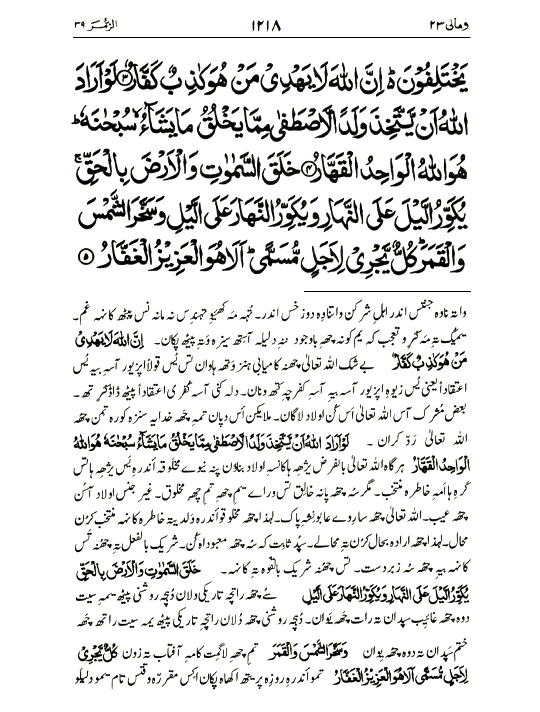 ومالی ۲۳ ۱۲۱۸ الزُّمَر ۳۹
يَخْتَلِفُوْنَ ەۙ اِنَّ اللّٰهَ لَا يَهْدِىْ مَنْ هُوَ كٰذِبٌ كَفَّارٌ ۳ لَوْ اَرَادَ
اللّٰهُ اَنْ يَّتَّخِذَ وَلَدًا لَّاصْطَفٰى مِمَّا يَخْلُقُ مَا يَشَآءُ ۙ سُبْحٰنَهٗ ؕ
هُوَ اللّٰهُ الْوَاحِدُ الْقَهَّارُ ۴ خَلَقَ السَّمٰوٰتِ وَالْاَرْضَ بِالْحَقِّ ۚ
يُكَوِّرُ الَّيْلَ عَلَى النَّهَارِ وَيُكَوِّرُ النَّهَارَ عَلَى الَّيْلِ وَسَخَّرَ الشَّمْسَ
وَالْقَمَرَ ؕ كُلٌّ يَّجْرِىْ لِاَجَلٍ مُّسَمًّى ؕ اَلَا هُوَ الْعَزِيْزُ الْغَفَّارُ ۵
واتہ ناوہ جنتس اندر اہلِ شرکن واتناوہ دوزخس اندر۔ تُہہ مہ کھیو تہندِس نہ ماننہ نس پیٹھ کانہہ غم۔
تہ مہ کرو تعجب کہ یم کونہ چھہ باوجود دلیلہ آستھ سیزہ وتہ پیٹھ پکان۔ اِنَّ اللّٰهَ لَا يَهْدِىْ
مَنْ هُوَ كٰذِبٌ كَفَّارٌ بے شک اللہ تعالیٰ چھنہ کامیابی ہنز وتھ ہاوان تس یُس قولاً اپزیور آسہ بیہ یُس
اعتقاداً یعنی یُس زیوہ اپزیور آسہ بیہ آسہ کفرچہ کتھ ونان۔ دلہ کنی آسہ کفری اعتقاداً پیٹھ ڈاڈکرتھ۔
بعض مُشرک آس اللہ تعالیٰ اس کُن اولاد لاگان۔ ملایکن آس دپان تمہ چھہ خدایہ سنزہ کورہ تمن چھہ
اللہ تعالیٰ رَدّ کران۔ لَوْ اَرَادَ اللّٰهُ اَنْ يَّتَّخِذَ وَلَدًا لَّاصْطَفٰى مِمَّا يَخْلُقُ مَا يَشَآءُ سُبْحٰنَهٗ هُوَ اللّٰهُ
الْوَاحِدُ الْقَهَّارُ ہرگاہ اللہ تعالیٰ بالفرض یژھہ ہا کانسہ اولاد بناؤن پنہ نیوے مخلوقہ اَندرہ یُس یژھہ ہا تس
کرِ ہا امہ خاطرہ منتخب۔ مگر سُہ چھہ پانہ خالِق تس وراے یم چھہ تم چھہ مخلوق۔ غیر جنس اولاد آسُن
چھہ عیب۔ اللہ تعالیٰ چھہ ساروے عابو نِشہ پاک۔ لہذا چھہ مخلوقو اَندرہ ولدیتہ خاطرہ کانہہ منتخب کرُن
محال۔ لہذا چھہ ارادہ بحال کرُن تہ محالے۔ سپُد ثابت کہ سُہ چھہ معبود اہ کُن۔ شریک بالفعل تہ چھنہ تس
کانہہ بیہ چھہ سُہ زبردست۔ تس چھنہ شریک بالقوہ تہ کانہہ۔ خَلَقَ السَّمٰوٰتِ وَالْاَرْضَ بِالْحَقِّ
يُكَوِّرُ الَّيْلَ عَلَى النَّهَارِ وَيُكَوِّرُ النَّهَارَ عَلَى الَّيْلِ سُے چھہ راتچہ تاریکی وَلان دُہچہ روشنی پیٹھ یمہ سیت
دوہ چھہ غایب سپدان تہ رات چھہ یوان۔ دُہچہ روشنی چھہ وُلان راتچہ تاریکی پیٹھ یمہ سیت راتھ چھہ
ختم سَپدان تہ دوہ چھہ یوان وَسَخَّرَ الشَّمْسَ وَالْقَمَرَ تمی چھہ لاگمت کامہ آفتاب تہ زون كُلٌّ يَّجْرِىْ
لِاَجَلٍ مُّسَمًّى اَلَا هُوَ الْعَزِيْزُ الْغَفَّارُ تمو اندرہ روزِ پریتھ اکھاہ پکان اکِس مقررہ وقتس تام یمو دلیلو